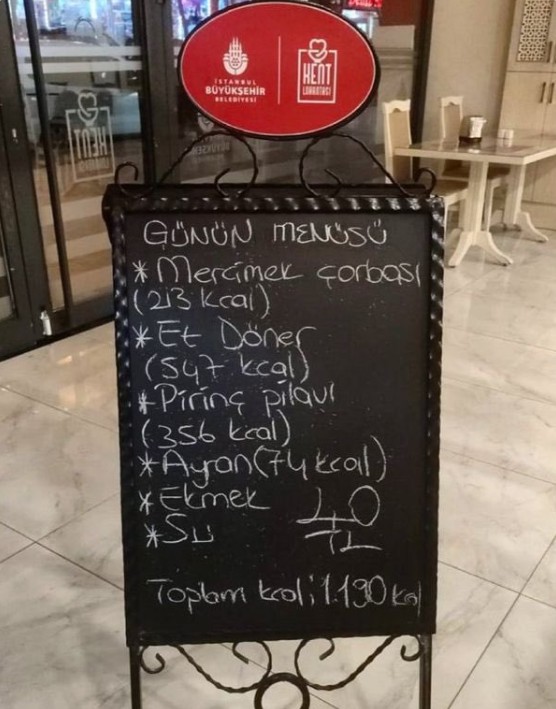 İSTANBUL
BÜYÜKŞEHİR
BELEDİYESİ
KENT
LOKANTASI
GÜNÜN MENÜSÜ
* Mercimek çorbası
(213 kcal)
* Et Döner
(547 kcal)
* Pirinç pilavı
(356 kcal)
* Ayran (74 kcal)
* Ekmek
* Su
40
TL
Toplam kcal: 1.190 kcal